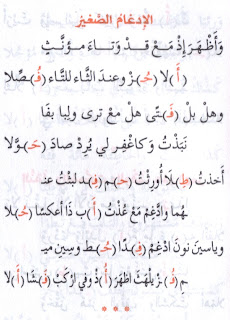 الإدغام الصغير
وَأَظْهَرَ إِذْ مَعْ قَدْ وَتَاءِ مُؤَنَّثٍ
(أَ)لا (حُـ)ـز وعندَ الثاء للتاء (فُـ)ـصِّلا
وهل بل (فَـ)ـتًى هل معْ ترى ولِبا بفا
نَبَذْتُ وَكَاغْفِر لي يُرِدْ صادَ (حَـ)ـوَّلا
أخذتُ (طُـ)ـلا أُورِثْتُ (حِـ)ـم (فِـ)ـد لبثت عنـ
هُما وادَّغِمْ مَعْ عُذْتُ (أُ)ب ذا اعكسًا (حَـ)ـلا
وياسينَ نونَ ادْغِمْ (فِـ)ـدًا (حُـ)ـط وسين ميـ
ـم (فُـ)ـز يلْهَثَ اظهَرَ (أُ)ذ وفي اركبْ (فَـ)ـشَا (أَ)لا